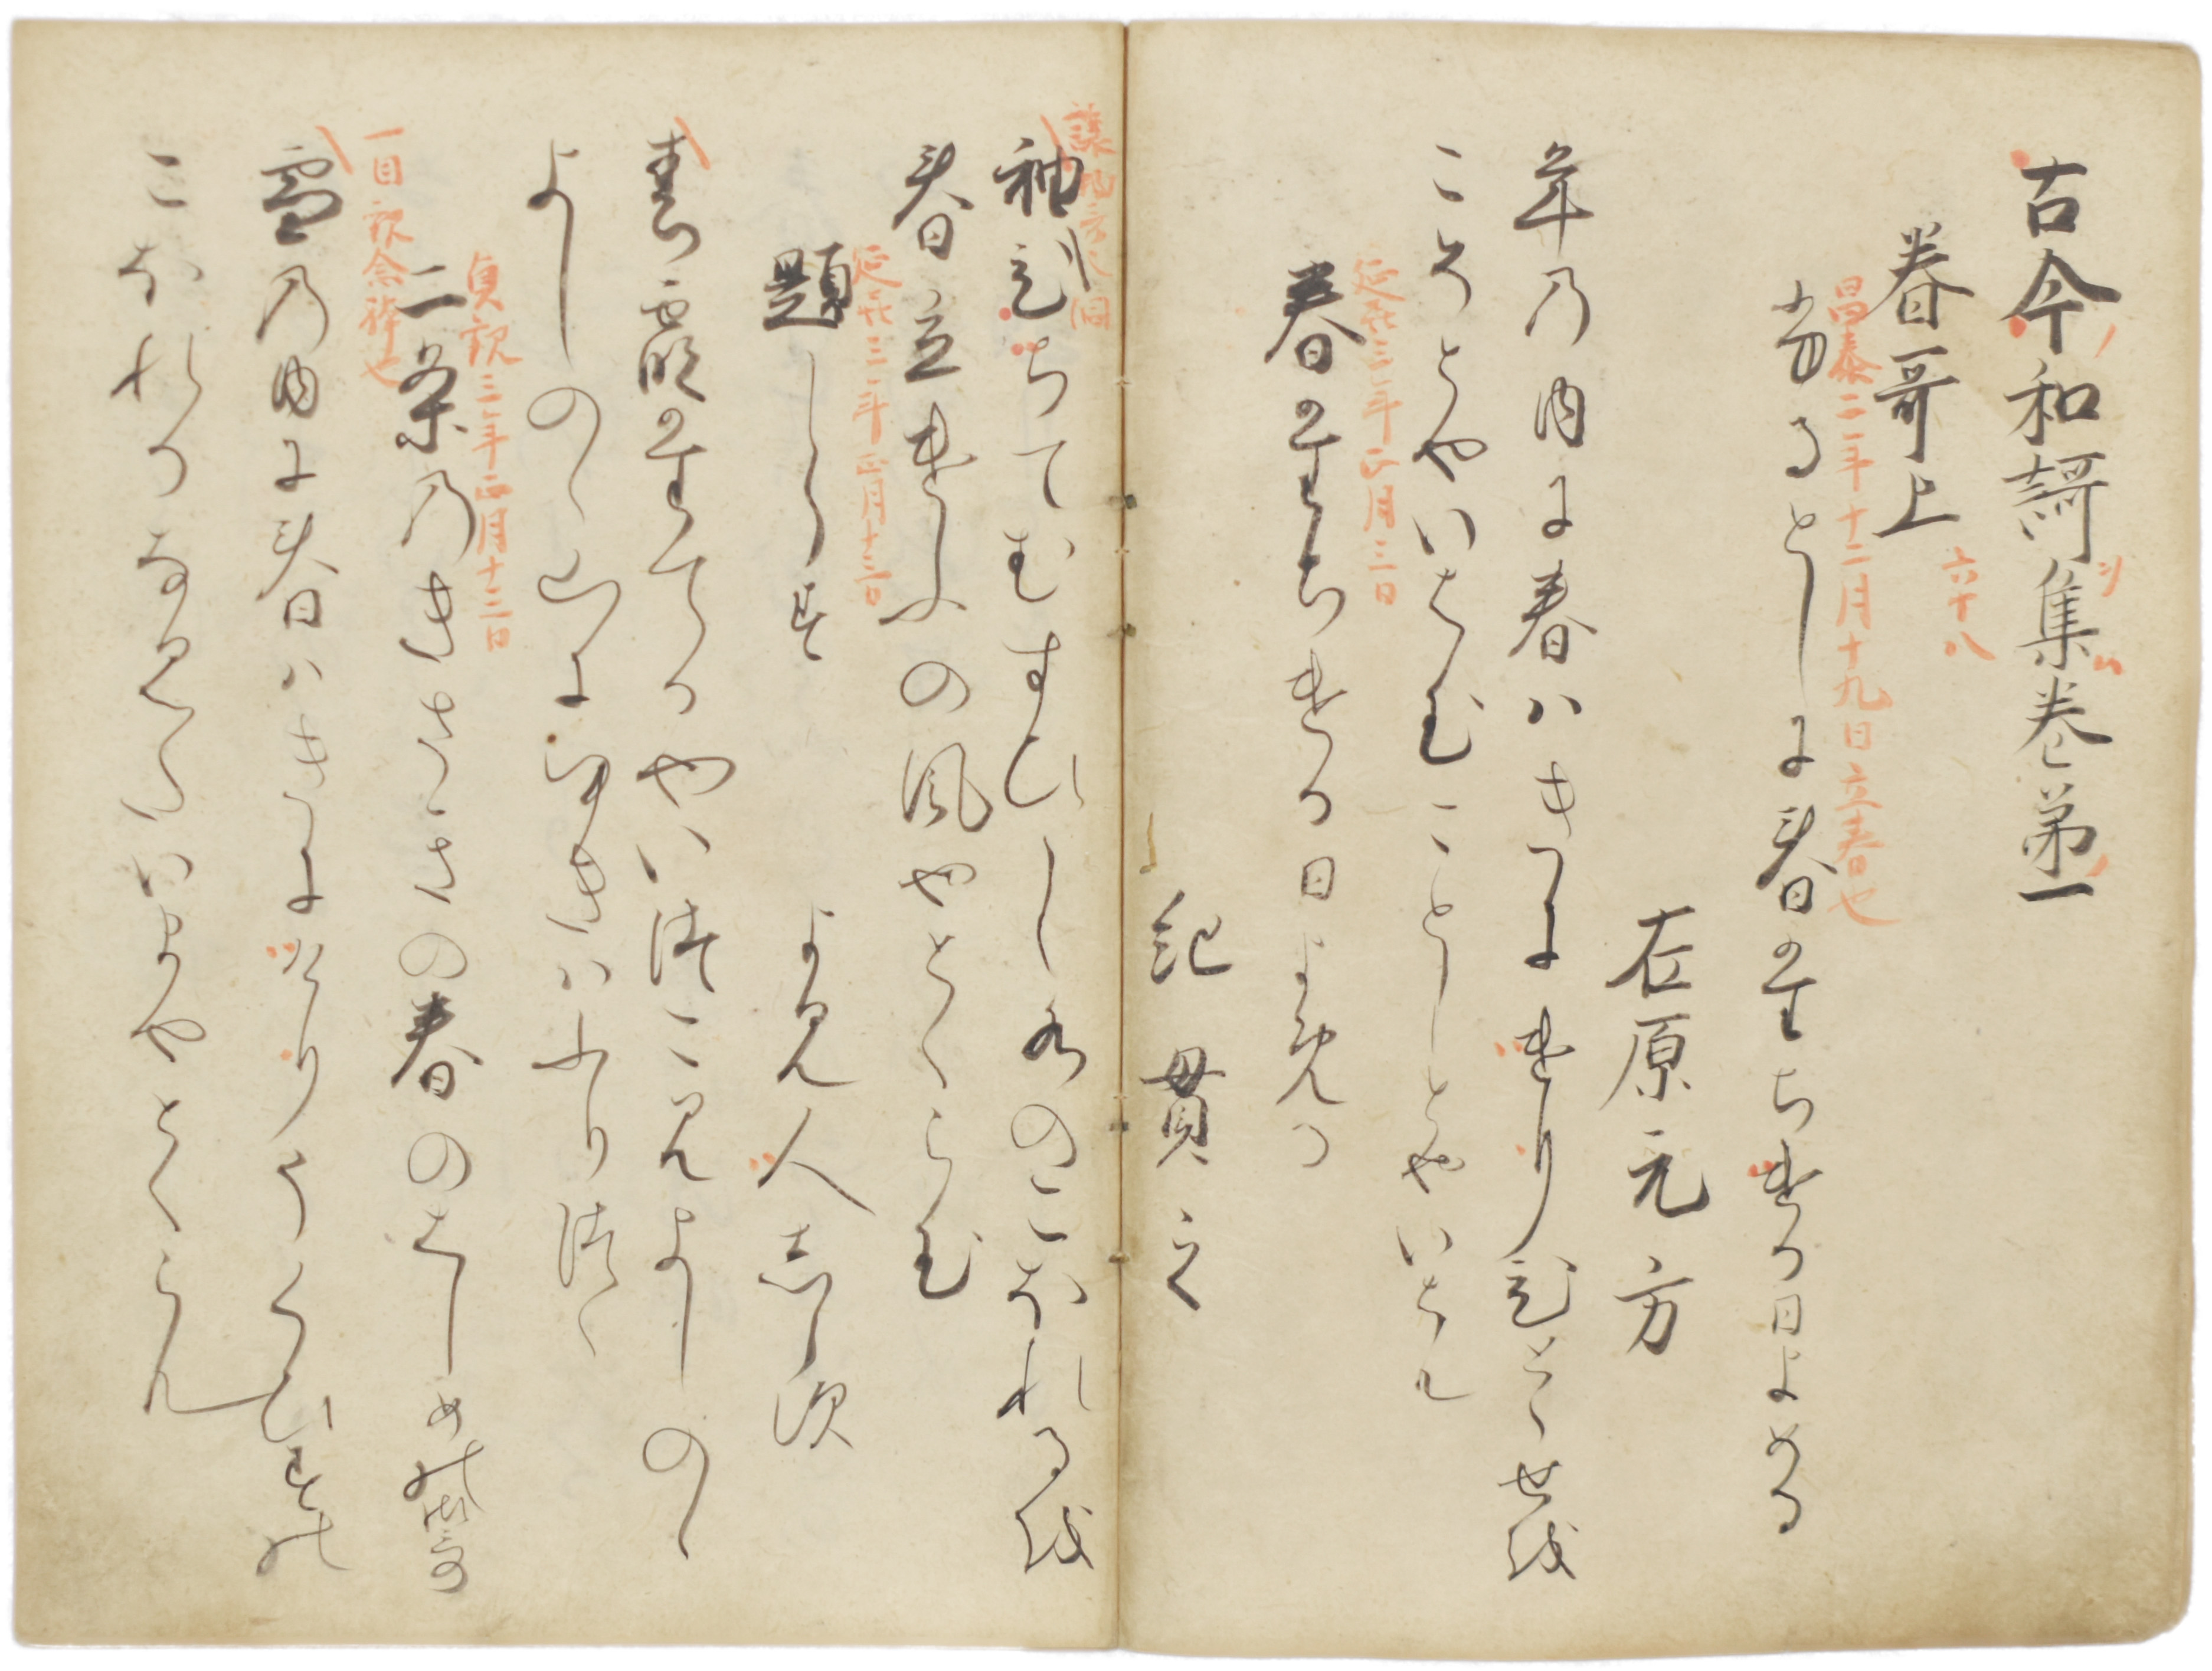 古今和謌集巻第一
春哥上
六十八
昌泰二年十二月十九日立春也
ふるとしに春たちける日よめる
在原元方
年乃内に春ハきにけりひとゝせを
こそとやいはむことしとやいはん
延㐂三年正月三日
春たちける日よめる
紀貫之
袖ひちてむすひし水のこほれるを
春立けふの風やとくらむ
延㐂三年正月十三日
題しらす
よみ人志らす
春霞たてるやいつこみよしのゝ
よしのゝ山にゆきハふりつゝ
貞観三年正月十三日
二条乃きさきの春のはしめの御哥
雪乃内に春ハきにけりうくひすの
こほれるなみたいまやとくらん